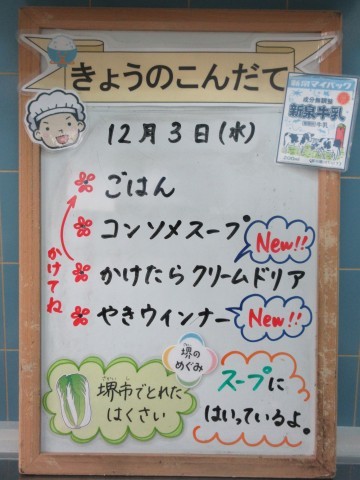 きょうのこんだて
新泉マイパック
成分無調整
新泉牛乳
12月3日(水)
ごはん
コンソメスープ
New!!
かけたらクリームドリア
かけてね
やきウィンナー
New!!
堺の
めぐみ
堺市でとれた
はくさい
スープに
はいっているよ。